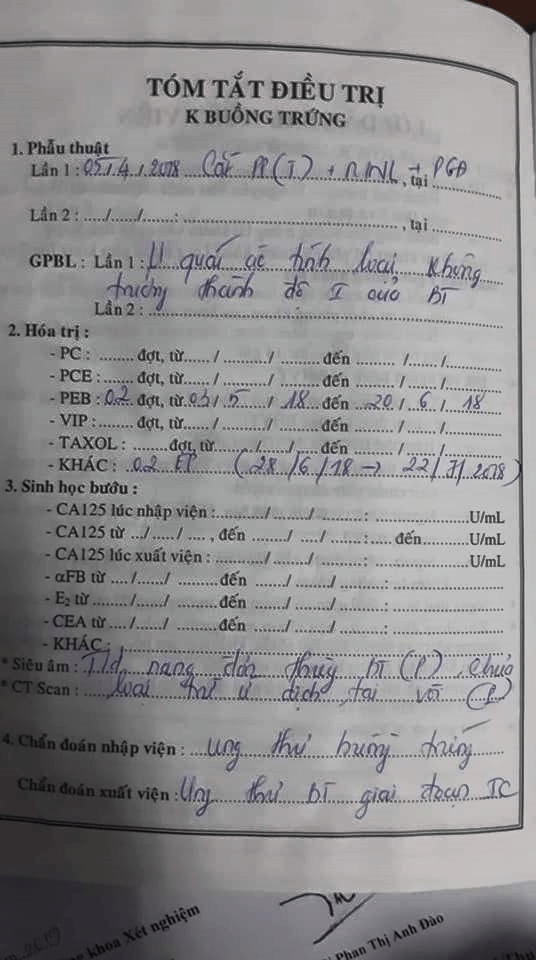 TÓM TẮT ĐIỀU TRỊ
K BUỒNG TRỨNG
1. Phẫu thuật
Lần 1 : 05/4/2018 Cắt PP(T) + MNL → PGĐ, tại
Lần 2 : ..../...../.....: ...................., tại ..........
GPBL : Lần 1 : U quái ác tính loại không
trưởng thành độ I của BT
Lần 2 : ..........
2. Hóa trị :
- PC : ........ đợt, từ....../ ........../ ........ đến ......... /......./........
- PCE : ....... đợt, từ....../ ........../ ........ đến ......... /......./........
- PEB : 02 đợt, từ 03/ 5 / 18 đến 20 / 6 / 18
- VIP : ........ đợt, từ....../ ........../ ........ đến ......... /......./........
- TAXOL : ........ đợt, từ....../....../ ....... đến ........ /......./........
- KHÁC : 02 EP (28/6/18 → 22/7/2018)
3. Sinh học bướu :
- CA125 lúc nhập viện : ........./ ......./ ........: ....................U/mL
- CA125 từ .../....../ .... , đến ....... /..... /..... : .... đến.........U/mL
- CA125 lúc xuất viện : ........./ ......./ ........: ....................U/mL
- αFB từ ..../ ....../ .........đến ......./ ....../ ........: ...............
- E₂ từ ......./ ....../ .........đến ......./ ....../ ........: ...............
- CEA từ ..../ ....../ .........đến ......./ ....../ ........: ...............
- KHÁC :
* Siêu âm : T/d nang đơn thùy BT (P), chưa
* CT Scan : loại trừ ứ dịch tai vòi (P)
4. Chẩn đoán nhập viện : Ung thư buồng trứng
Chẩn đoán xuất viện : Ung thư BT giai đoạn IC
khoa Xét nghiệm
Phan Thị Anh Đào